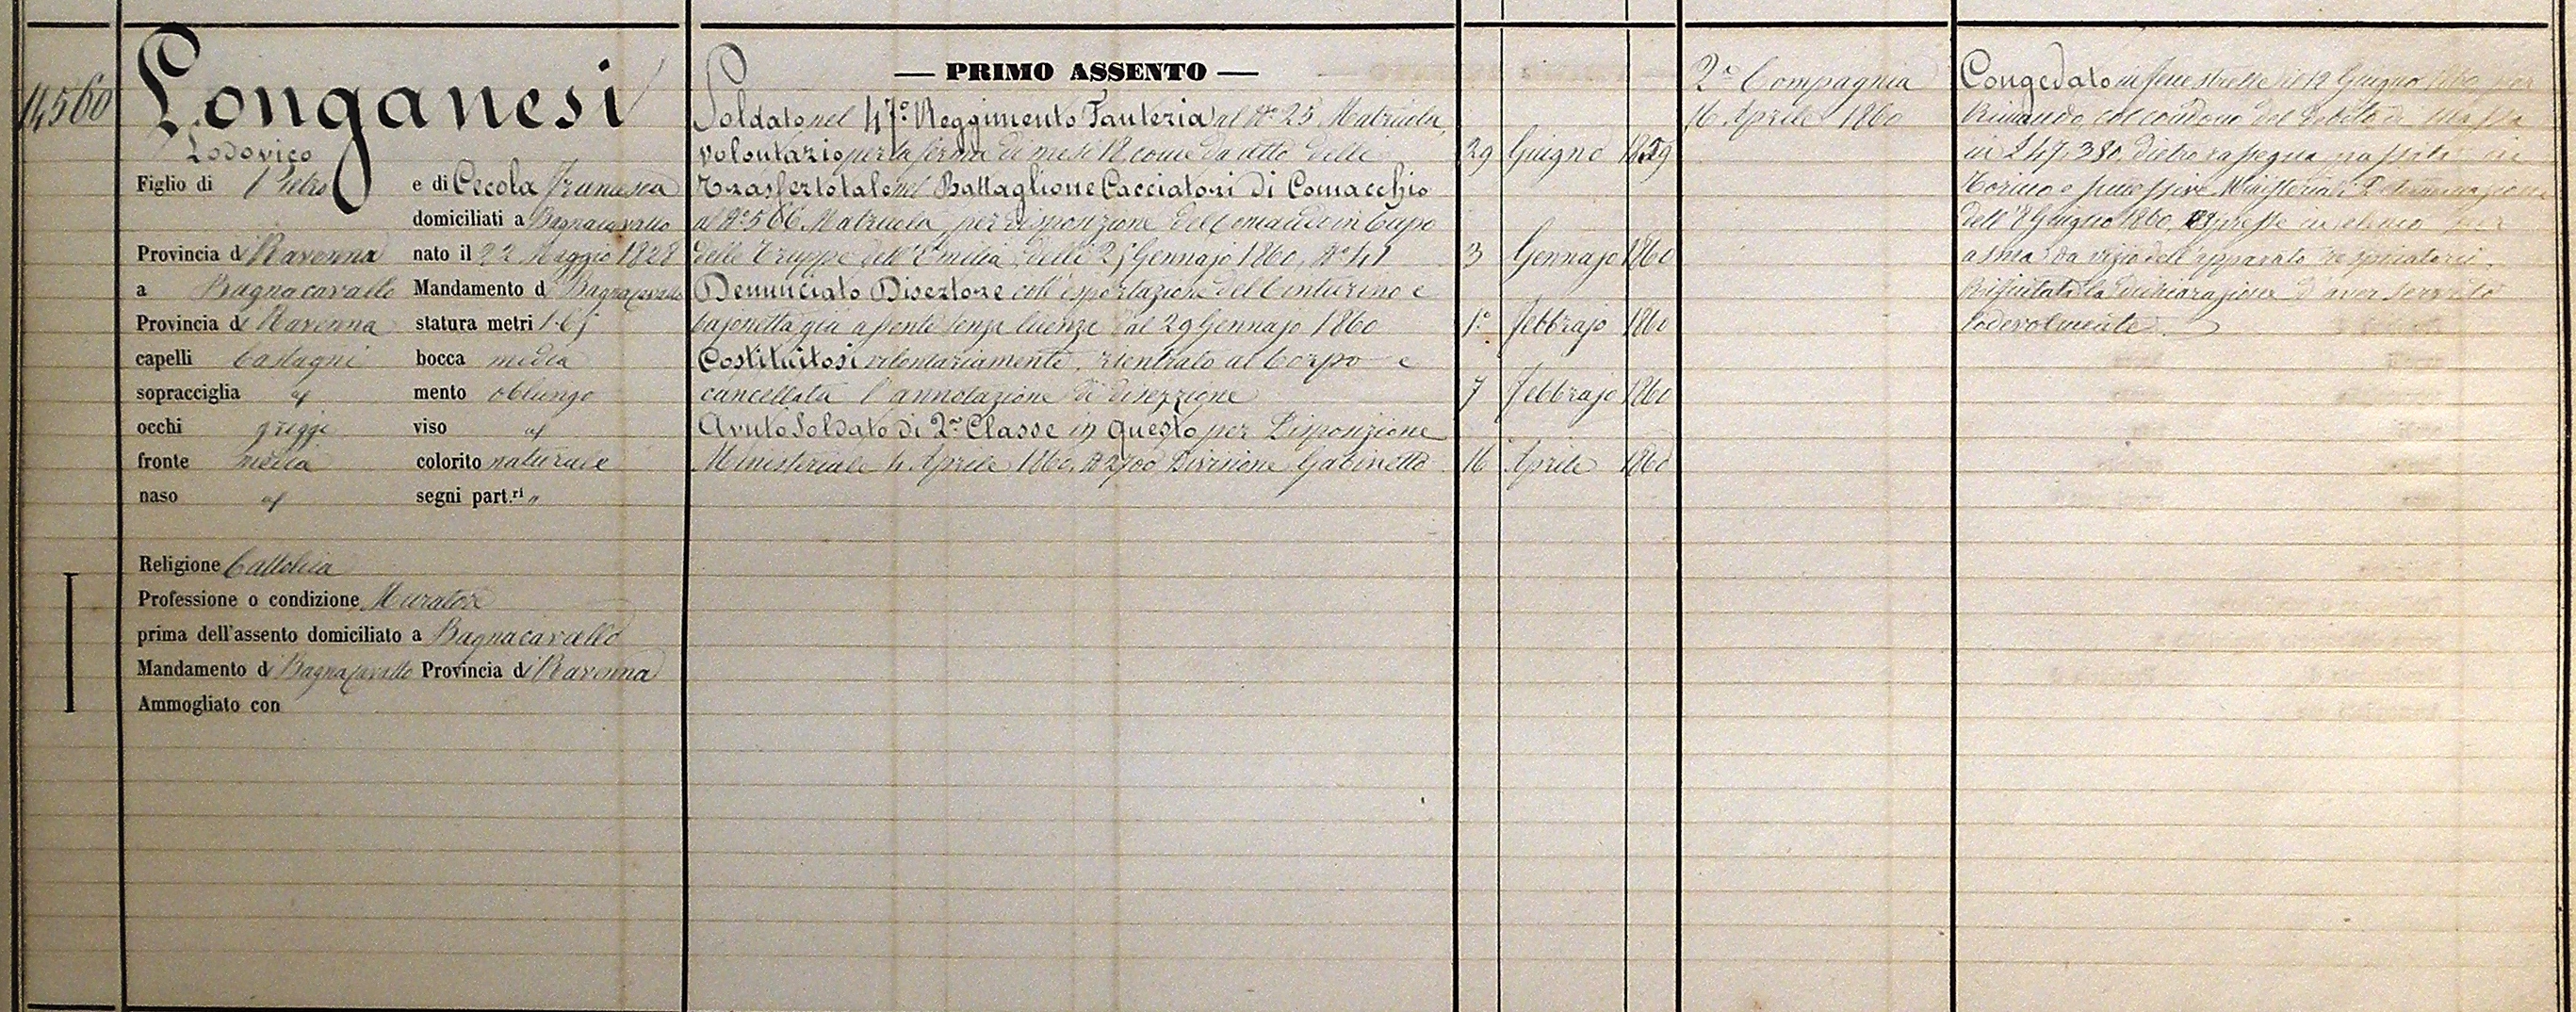 14560
Longanesi
Lodovico
Figlio di Pietro e di Cecola Francesca
domiciliati a Bagnacavallo
Provincia di Ravenna nato il 22 Maggio 1828
a Bagnacavallo Mandamento di Bagnacavallo
Provincia di Ravenna statura metri 1.65
capelli Castagni bocca media
sopracciglia mento oblungo
occhi griggi viso
fronte media colorito naturale
naso segni part.ri "
Religione Cattolica
Professione o condizione Muratore
prima dell'assento domiciliato a Bagnacavallo
Mandamento di Bagnacavallo Provincia di Ravenna
Ammogliato con
— PRIMO ASSENTO —
Soldato nel 47º Reggimento Fanteria al Nº 25 Matricola
volontario per la ferma di mesi 18 come da atto delle 29 Giugno 1859
Trasferto tale nel Battaglione Cacciatori di Comacchio
al Nº 566 Matricola, per disposizione del Comando in Capo
delle Truppe dell'Emilia, delli 25 Gennajo 1860, Nº 41 3 Gennajo 1860
Denunciato Disertore coll'esportazione del Centurino e
bajonetta già assente senza licenza dal 29 Gennajo 1860 1º Febbrajo 1860
Costituitosi volontariamente, rientrato al Corpo e
cancellata l'annotazione di diserzione 7 Febbrajo 1860
Avuto Soldato di 2ª Classe in questo per Disposizione
Ministeriale 4 Aprile 1860, Nº 2700 Divisione Gabinetto 16 Aprile 1860
2ª Compagnia
16 Aprile 1860
Congedato in Fenestrelle il 19 Giugno 1860 per
Rimando, col condono del debito di massa
in L 47,380, dietro rassegna passata in
Torino e successive Ministeriali Determinazione
dell'8 Giugno 1860, espresse in elenco per
asma da vizio dell'apparato respiratorio.
Rifiutata la dichiarazione d'aver servito
lodevolmente.